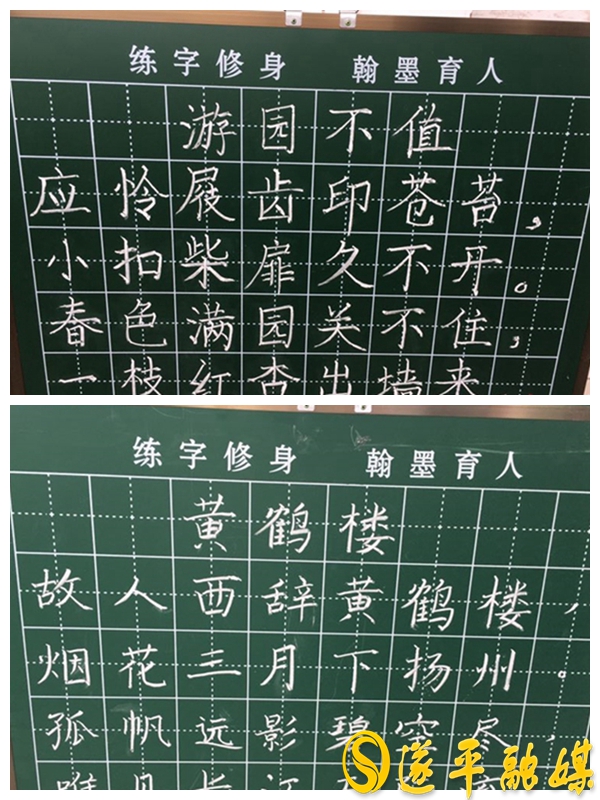 练字修身 翰墨育人
游园不值
应怜屐齿印苍苔，
小扣柴扉久不开。
春色满园关不住，
一枝红杏出墙来
练字修身 翰墨育人
黄鹤楼
故人西辞黄鹤楼，
烟花三月下扬州。
孤帆远影碧空尽，
唯见长江
遂平融媒